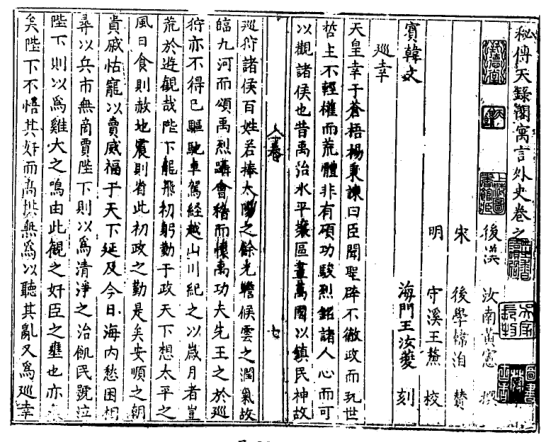 秘傳天錄閣寓言外史卷之
後漢 汝南黃憲 撰
宋 後學韓洎 贊
明 守溪王鏊 校
海門王汝燮 刻
賓韓文
巡幸
天皇幸于蒼梧楊秉諫曰臣聞聖辟不徹政而玩世
哲主不輕權而荒體非有碩功駿烈銘諸人心而可
以觀諸侯也昔禹治水平攘區畫萬國以鎮民神故
巡狩諸侯百姓若捧太陽之餘光瞻候雲之潤氣故
臨九河而頌禹烈議會稽而懷禹功夫先王之於巡
狩亦不得已驅馳車駕經越山川紀之以歲月者豈
荒於遊觀哉陛下龍飛初躬勤于政天下想太平之
風日食則赦地震則省此初政之勤是矣安順之朝
貴戚怙寵以賣威福于天下延及今日海内愁困相
尋以兵市無商賈陛下則以為清淨之治飢民號泣
陛下則以為雞犬之鳴由此觀之奸臣之壅也亦
矣陛下不悟其好而高拱無為以聽其亂又為巡幸